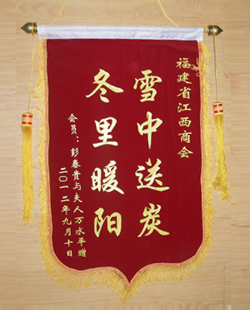 福建省江西商会
雪中送炭
冬里暖阳
会员：彭春贵与夫人万水平赠
二〇一二年九月十日